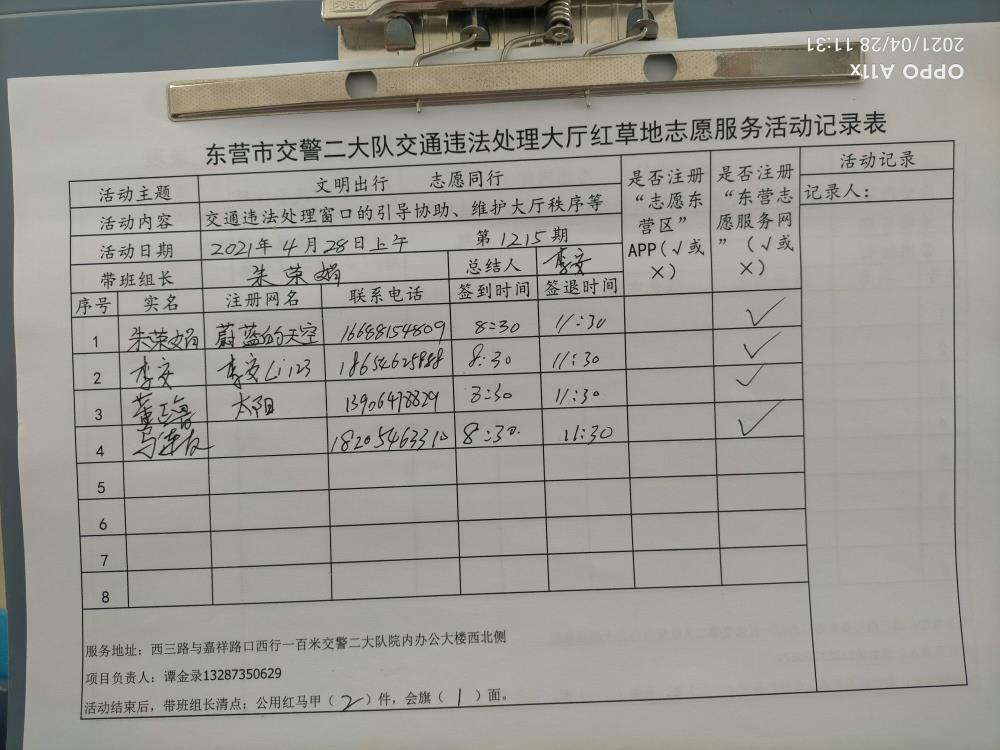 PUSH
2021/04/28 11:31
OPPO A11x
东营市交警二大队交通违法处理大厅红草地志愿服务活动记录表
活动主题 文明出行 志愿同行
活动内容 交通违法处理窗口的引导协助、维护大厅秩序等
活动日期 2021年4月28日上午 第1215期
带班组长 朱荣娟 总结人 李安
是否注册“志愿东营区”APP(√或×)
是否注册“东营志愿服务网”(√或×)
活动记录
记录人:
序号 实名 注册网名 联系电话 签到时间 签退时间
1 朱荣娟 蔚蓝的天空 16688154809 8:30 11:30 √
2 李安 李安Li123 18654625888 8:30 11:30 √
3 太阳 13906478829 8:30 11:30 √
4 马连友 18205463310 8:30 11:30 √
5
6
7
8
服务地址:西三路与嘉祥路口西行一百米交警二大队院内办公大楼西北侧
项目负责人:谭金录13287350629
活动结束后,带班组长清点:公用红马甲(2)件,会旗(1)面。